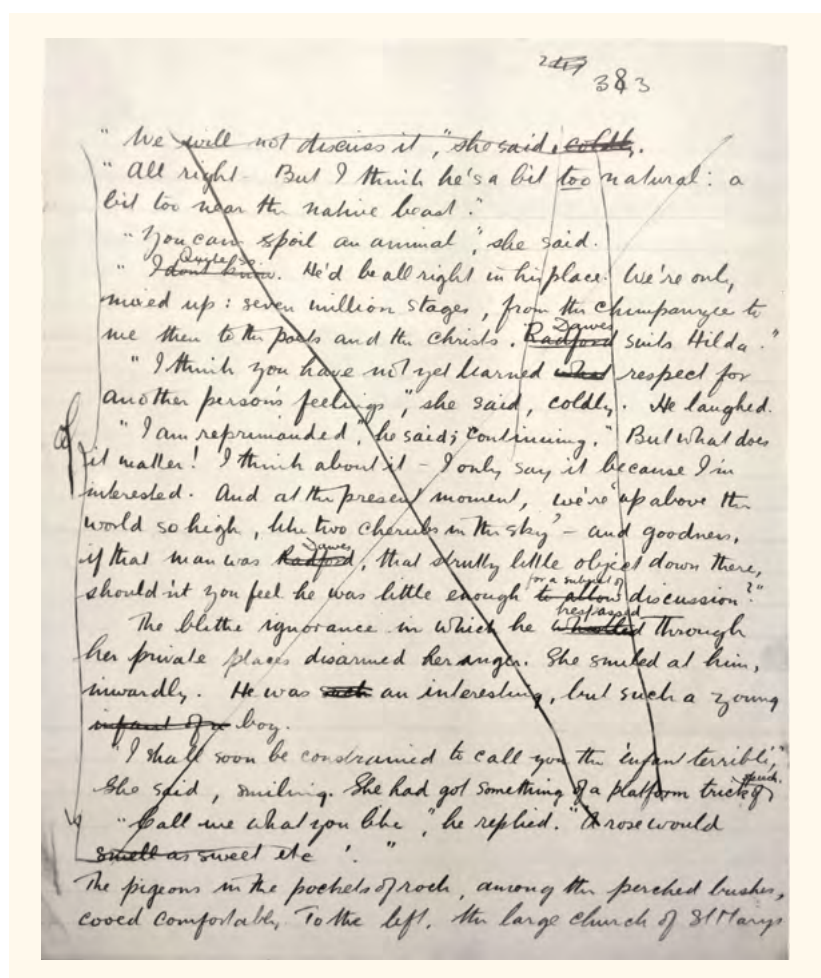 383
" We will not discuss it ", she said, coldly.
" All right. But I think he's a bit too natural : a
bit too near the native beast ."
" You can spoil an animal ", she said.
" I don't know Quite so . He'd be all right in his place. We're only
mixed up : seven million stages , from the chimpanzee to
me then to the poets and the Christs . Radford Dawes suits Hilda ."
" I think you have not yet learned what respect for
another person's feelings ", she said, coldly . He laughed.
" I am reprimanded ", he said; continuing . " But what does
it matter ! I think about it – I only say it because I'm
interested. And at the present moment, we're 'up above the
world so high , like two cherubs in the sky' – and goodness,
if that man was Radford Dawes , that strutty little object down there,
should n't you feel he was little enough to allow for a subject of discussion ?"
The blithe ignorance in which he trespassed through
her private places disarmed her anger. She smiled at him,
inwardly . He was such an interesting , but such a young
infant of a boy.
" I shall soon be constrained to call you the 'infant terrible',"
she said , smiling. She had got something of a platform trick of speech.
" Call me what you like ", he replied. " A rose would
smell as sweet etc '. "
The pigeons in the pockets of rock , among the perched bushes,
cooed comfortably. To the left, the large church of St Mary's